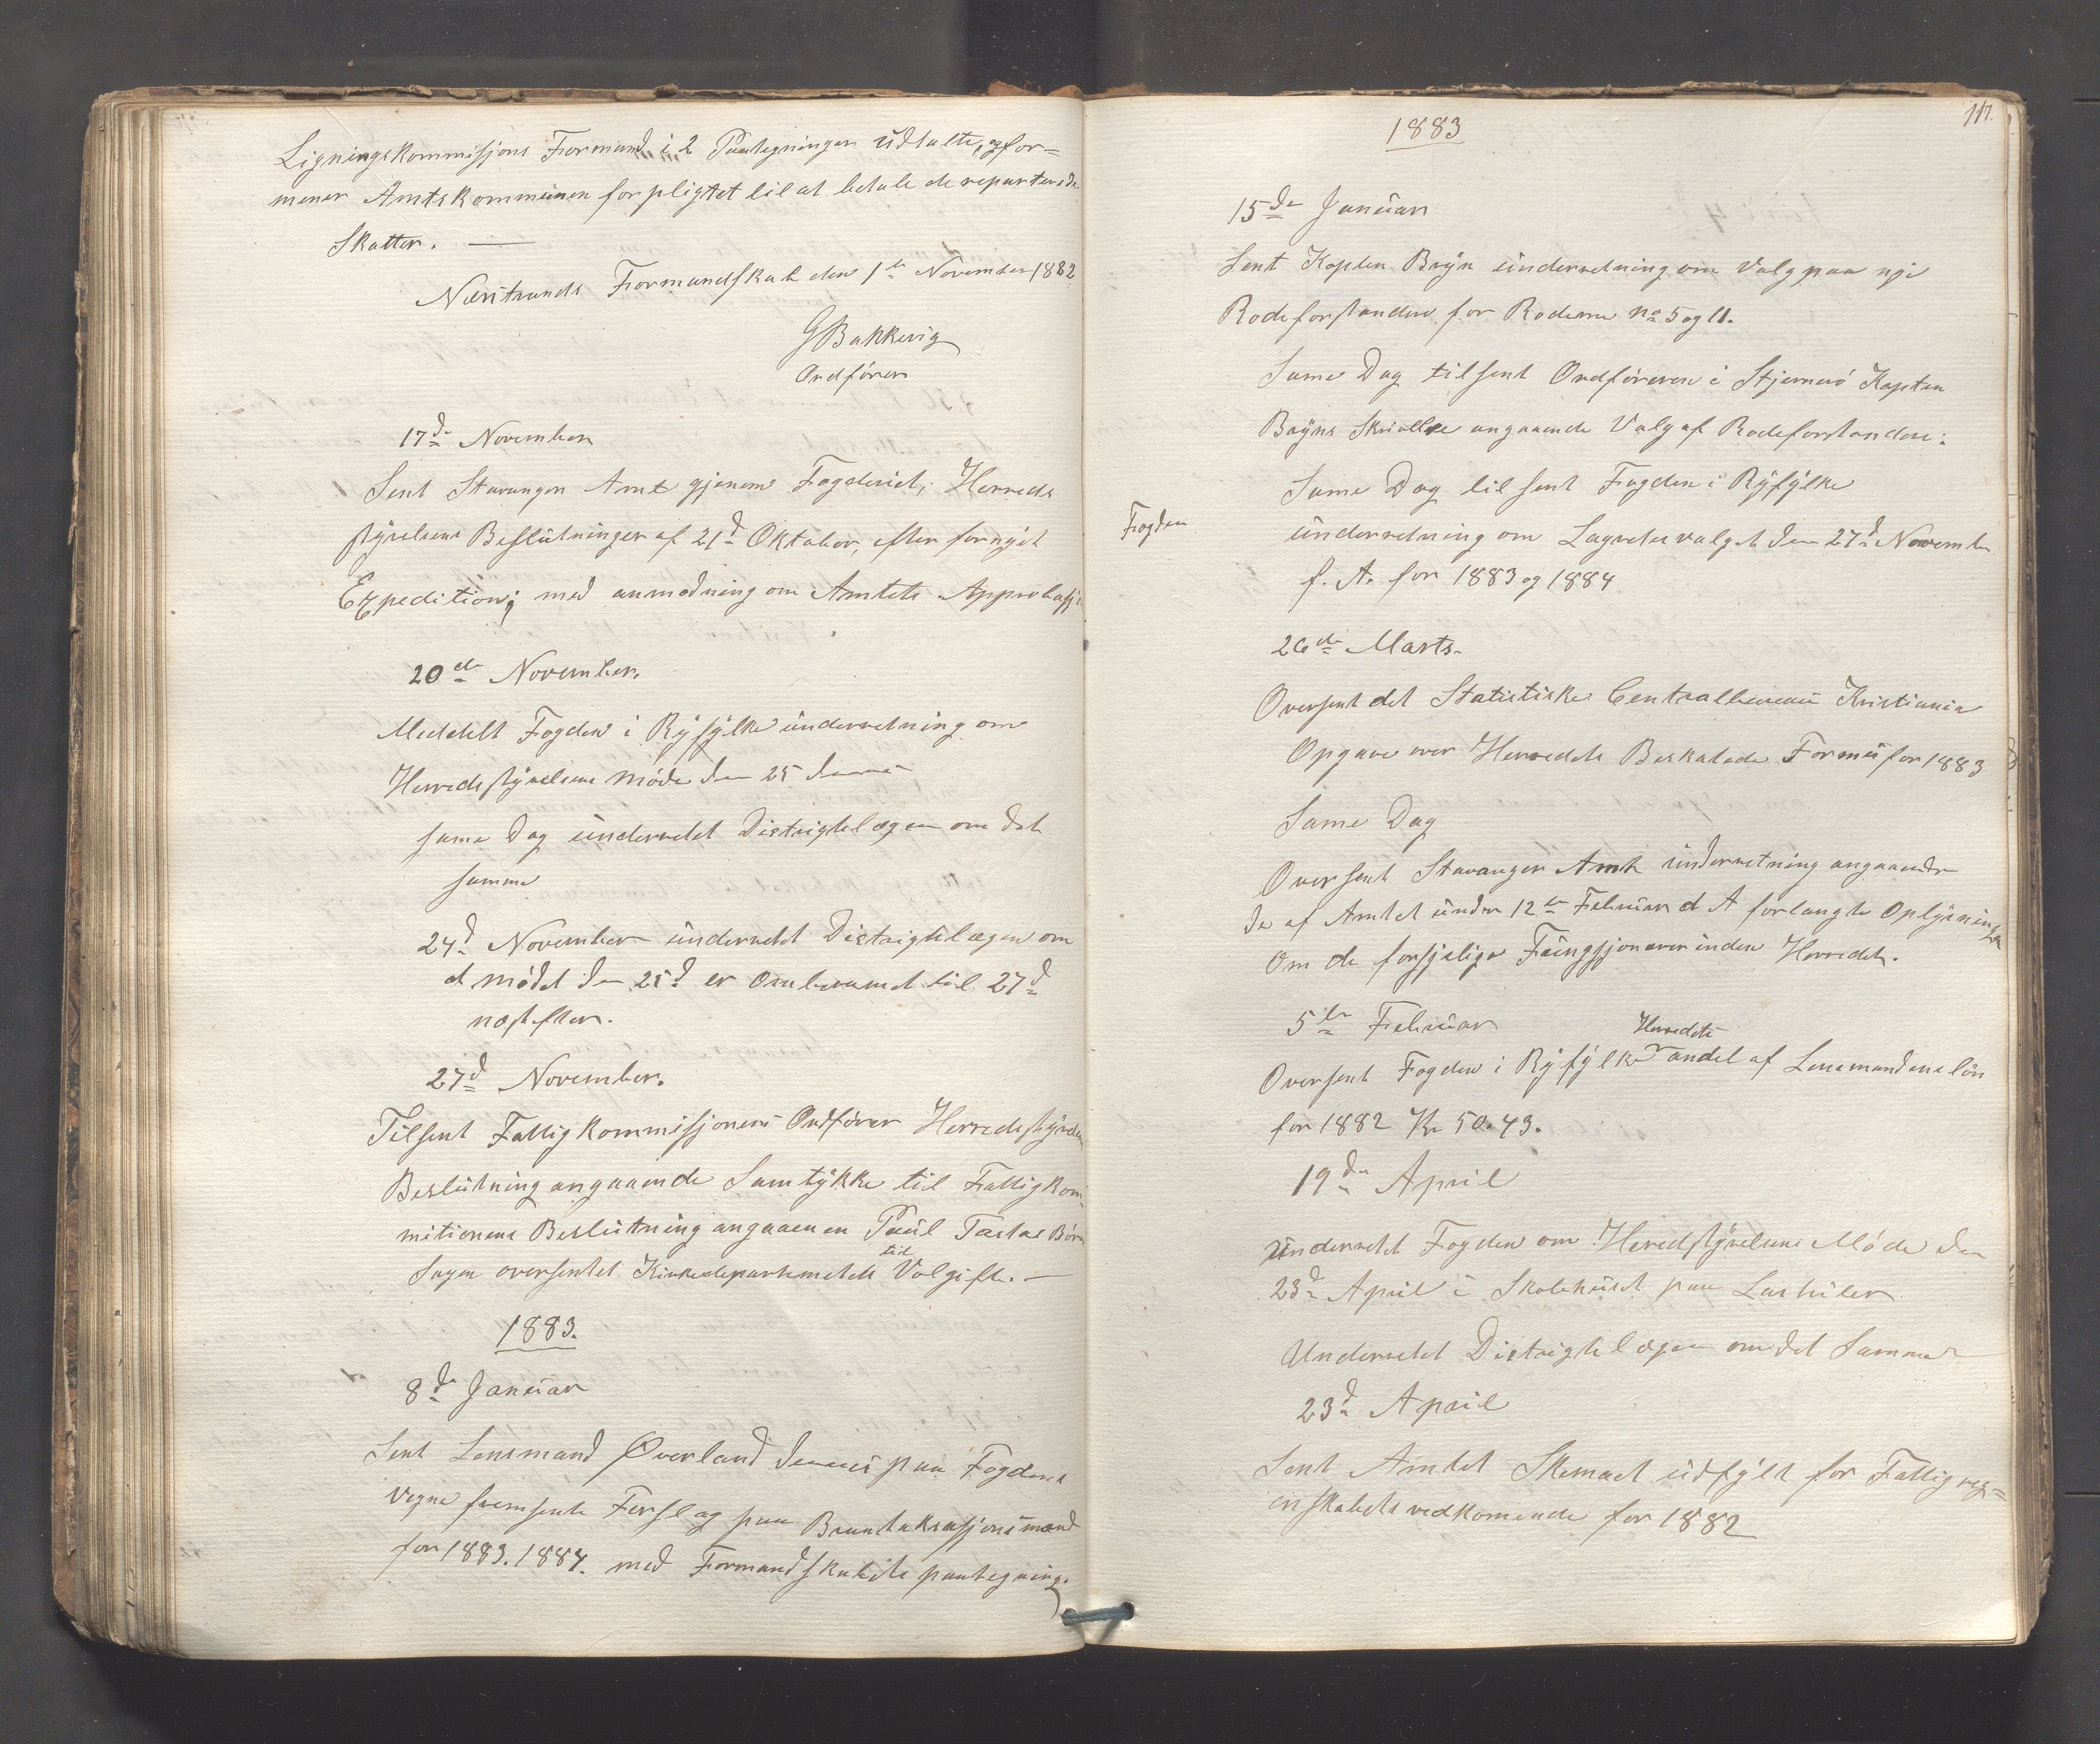 Ligningskommisjons Formand i 2 Paategninger udtalte, og for=
mener Amtskommunen forpligtet til at betale de reparterede
Skatter. —
Nærstrands Formandskab den 1te November 1882
GBakkevig
Ordfører
17de November
Sent Stavanger Amt gjenem Fogderiet, Herreds
styrelsens Beslutninger af 21d Oktober, efter fornyet
Expedition; med anmodning om Amtets Approbasj
20de November.
Meddelt Fogden i Ryfylke underretning om
Herredsstyrelsens Møde den 25 dennes
same Dag underrettet Distrigtslægen om det
samme
24d November underrettet Distrigtslægen om
at mødet den 25d er Omberamet til 27d
næstefter.
27d November.
Tilsent Fattigkommisjonens Ordfører Herredsstyrelsens
Beslutning angaaende Samtykke til Fattigkom
mitionens Beslutning angaaenen Paul Tastas Børn
Sagen oversentet Kirkedepartemetets til Valgift. —
1883.
8de Januar
Sent Lensmand Øverland dennes paa Fogdens
Vegne fremsente Forslag paa Branntaksasjonsmænd
for 1883. 1884. med Formandskabets paategning.
117.
1883
15de Januar
Sent Kapten Bryn underretning om Valg paa nye
Rodeforstandere for Roderne No 5 og 11.
Same Dag tilsent Ordføreren i Stjernerø Kapten
Bryns Skrivelse angaaende Valg af Rodeforstandere.
Same Dag tilsent Fogden i Ryfylke
Fogden
underretning om Lagrettesvalget den 27d Novembr
f. A. for 1883 og 1884
26de Marts.
Oversent det Statistiske Centralbureau Kristiania
Opgave over Herredets Beskatede Formue for 1883
Same Dag
Oversent Stavanger Amt underretning angaaende
de af Amtet under 12te Februar d A forlangte Oplysninger
Om de forsjelige Fungsjonærer inden Herredet.
5te Februar
Oversent Fogden i Ryfylke Herredets andel af Lensmandens løn
for 1882 Kr 50.43.
19de April
Underrettet Fogden om Heredstyrelsens Møde den
23d April i Skolehuset paa Lashuler
Underrettet Distrigtslægen om det Samme
23d April
Sent Amtet Skemaet udfylt for Fattigreg=
enskabets vedkomende for 1882